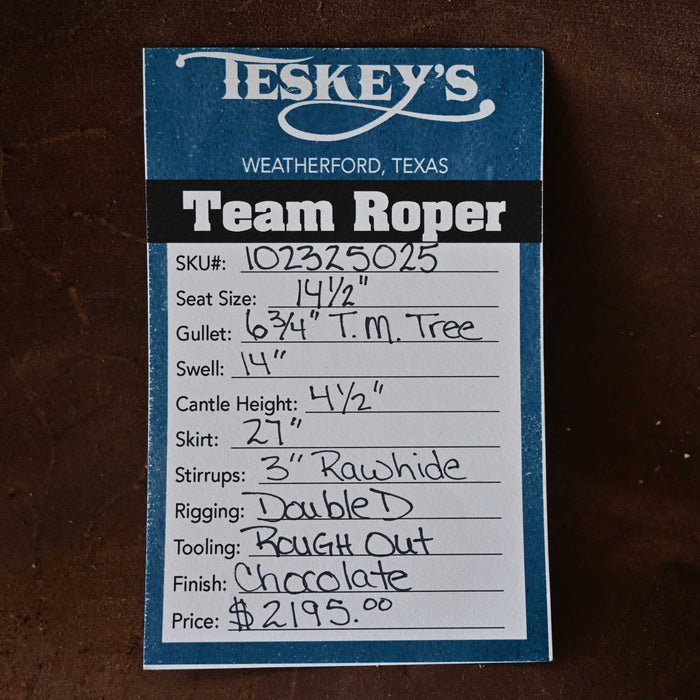 TESKEY'S
WEATHERFORD, TEXAS
Team Roper
SKU#: 102325025
Seat Size: 14 1/2"
Gullet: 6 3/4" T.M. Tree
Swell: 14"
Cantle Height: 4 1/2"
Skirt: 27"
Stirrups: 3" Rawhide
Rigging: Double D
Tooling: ROUGH Out
Finish: Chocolate
Price: $2195.00